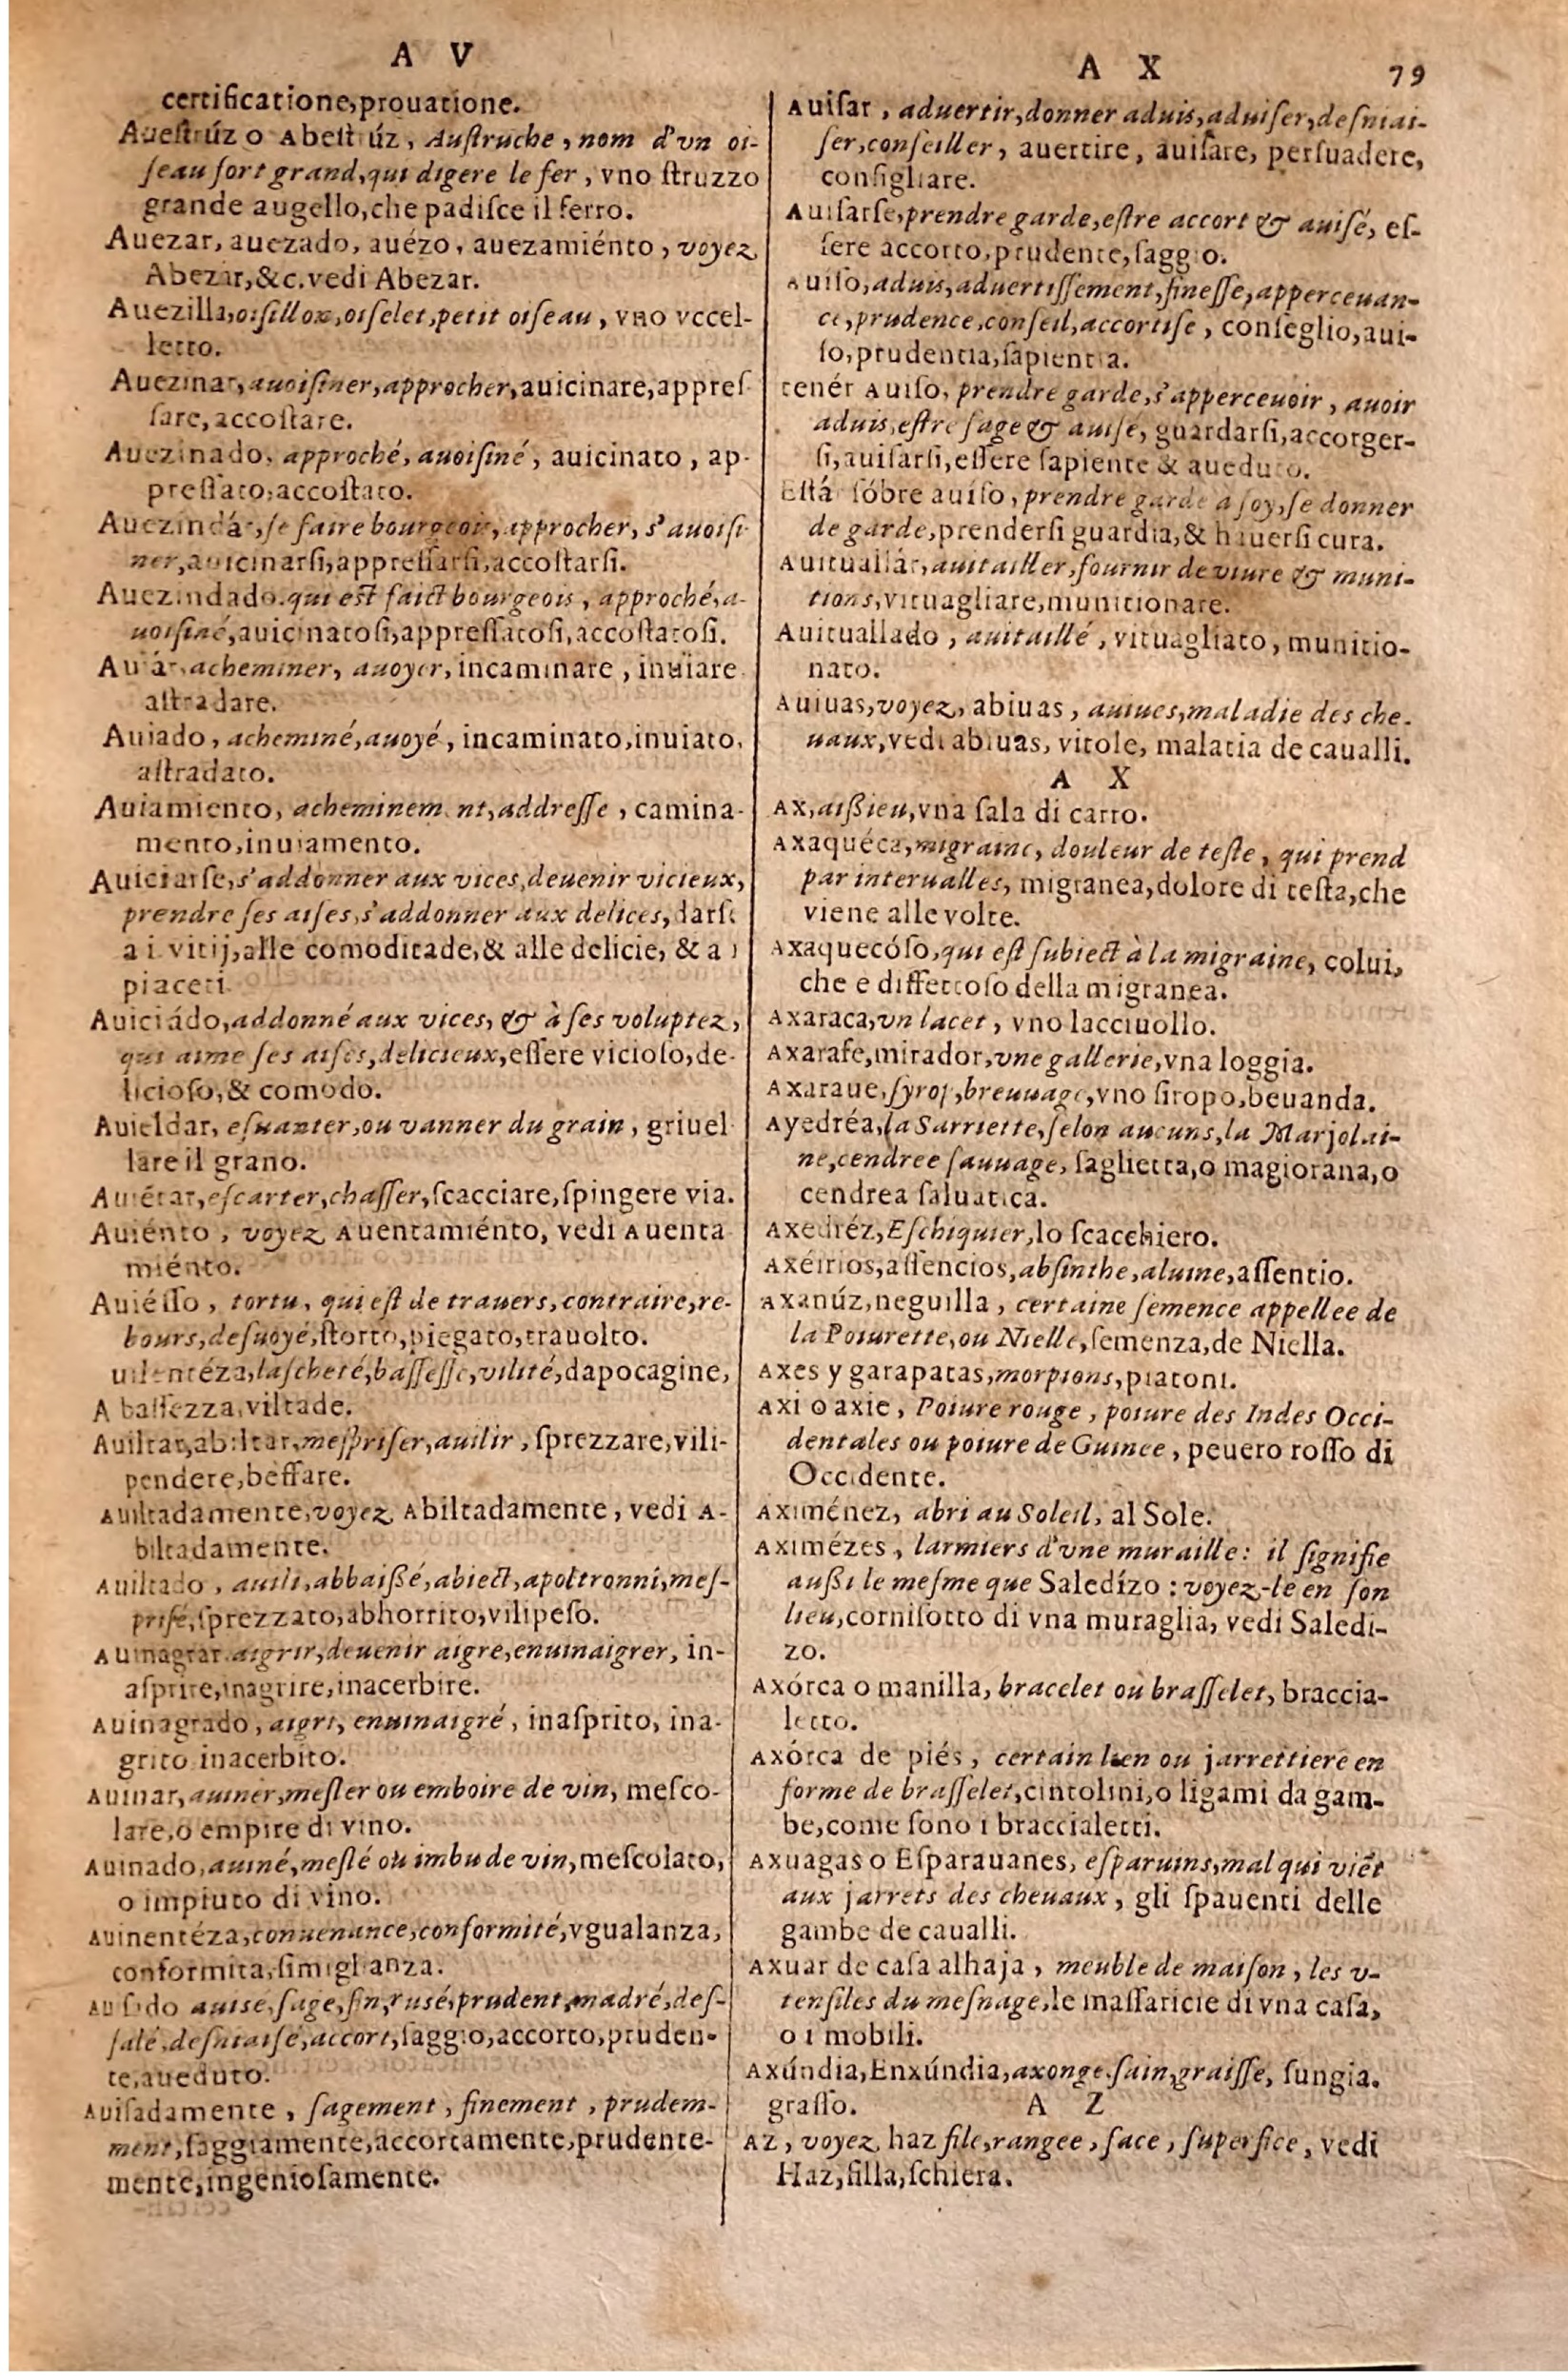 A V
certificatione,prouatione.
Aueſtrúz o Abeſtrúz, Auſtruche, nom d'vn oi-
ſeau fort grand,qui digere le fer, vno ſtruzzo
grande augello,che padiſce il ferro.
Auezar, auezado, auézo, auezamiénto, voyez
Abezar,&c.vedi Abezar.
Auezilla,oiſillon,oiſelet,petit oiſeau, vno vccel-
letto.
Auezinar,auoiſiner,approcher,auicinare,appreſ
ſare,accoſtare.
Auezinado, approché, auoiſiné, auicinato, ap-
preſſato,accoſtato.
Auezindár,ſe faire bourgeois, approcher, s'auoiſi
ner,auicinarſi,appreſſarſi,accoſtarſi.
Auezindado.qui eſt faict bourgeois, approché,a-
uoiſiné,auicinatoſi,appreſſatoſi,accoſtatoſi.
Auiár,acheminer, auoyer, incaminare, inuiare
aſtradare.
Auiado, acheminé,auoyé, incaminato,inuiato,
aſtradato.
Auiamiento, acheminem nt,addreſſe, camina-
mento,inuiamento.
Auiciarſe,s'addonner aux vices,deuenir vicieux,
prendre ſes aiſes,s'addonner aux delices,darſi
a i vitij,alle comoditade,& alle delicie, & a i
piaceti
Auiciádo,addonné aux vices, & à ſes voluptez,
qui aime ſes aiſes,delicieux,eſſere vicioſo,de-
licioſo,& comodo.
Auieldar, eſuanter,ou vanner du grain, griuel
lare il grano.
Auiétar,eſcarter,chaſſer,ſcacciare,ſpingere via.
Auiénto, voyez Auentamiénto, vedi Auenta
miénto.
Auiéſſo, tortu, qui eſt de trauers,contraire,re-
bours,deſuoyé,ſtorto,piegato,trauolto.
uilentéza,laſcheté,baſſeſſe,vilité,dapocagine,
A baſſezza,viltade.
Auiltar,abiltar,meſpriſer,auilir, ſprezzare,vili-
pendere,beffare.
Auiltadamente,voyez Abiltadamente, vedi A-
biltadamente.
Auiltado, auili,abbaißé,abiect,apoltronni,meſ-
priſé,ſprezzato,abhorrito,vilipeſo.
Auinagrar aigrir,deuenir aigre,enuinaigrer, in-
aſprire,inagrire,inacerbire.
Auinagrado, aigri, enuinaigré, inaſprito, ina-
grito inacerbito.
Auinar,auiner,meſler ou emboire de vin, meſco-
lare,o empire di vino.
Auinado,auiné,meſlé ou imbu de vin,meſcolato,
o impiuto di vino.
Auinentéza,conuenance,conformité,vgualanza,
conformita,ſimiglianza.
Auiſado auiſé,ſage,fin,ruſé,prudent,madré,deſ-
ſalé,deſniaiſé,accort,ſaggio,accorto,pruden-
te,aueduto.
Auiſadamente, ſagement, finement, prudem-
ment,ſaggiamente,accortamente,prudente-
mente,ingenioſamente.
A X 79
Auiſar, aduertir,donner aduis,aduiſer,deſniai-
ſer,conſeiller, auertire, auiſare, perſuadere,
conſigliare.
Auiſarſe,prendre garde,eſtre accort & auiſé, eſ-
ſere accorto,prudente,ſaggio.
Auiſo,aduis,aduertiſſement,fineſſe,apperceuan-
ce,prudence,conſeil,accortiſe, conſeglio,aui-
ſo,prudentia,ſapientia.
tenér Auiſo, prendre garde,s'apperceuoir, auoir
aduis,eſtre ſage & auiſé, guardarſi,accorger-
ſi,auiſarſi,eſſere ſapiente & aueduto.
Eſtá ſóbre auiſo, prendre garde a ſoy,ſe donner
de garde,prenderſi guardia,& hauerſi cura.
Auituallár,auitailler,fournir de viure & muni-
tions,vituagliare,munitionare.
Auituallado, auitaillé, vituagliato, munitio-
nato.
Auiuas,voyez, abiuas, auiues,maladie des che-
uaux,vedi abiuas, vitole, malatia de caualli.
A X
Ax,aißieu,vna ſala di carro.
Axaquéca,migraine, douleur de teſte, qui prend
par interualles, migranea,dolore di teſta,che
viene alle volte.
Axaquecóſo,qui eſt ſubiect à la migraine, colui,
che e diffettoſo della migranea.
Axaraca,vn lacet, vno lacciuollo.
Axarafe,mirador,vne gallerie,vna loggia.
Axaraue,ſyrop,breuuage,vno ſiropo,beuanda.
Ayedréa,la Sarriette,ſelon aucuns,la Marjolai-
ne,cendree ſauuage, ſaglietta,o magiorana,o
cendrea ſaluatica.
Axedréz,Eſchiquier,lo ſcacchiero.
Axéirios,aſſencios,abſinthe,aluine,aſſentio.
Axanúz,neguilla, certaine ſemence appellee de
la Poiurette,ou Nielle,ſemenza,de Niella.
Axes y garapatas,morpions,piatoni.
Axi o axie, Poiure rouge, poiure des Indes Occi-
dentales ou poiure de Guinee, peuero roſſo di
Occidente.
Aximénez, abri au Soleil, al Sole.
Aximézes, larmiers d'vne muraille: il ſignifie
außi le meſme que Saledízo : voyez-le en ſon
lieu,corniſotto di vna muraglia, vedi Saledi-
zo.
Axórca o manilla, bracelet ou braſſelet, braccia-
letto.
Axórca de piés, certain lien ou jarrettiere en
forme de braſſelet,cintolini,o ligami da gam-
be,come ſono i braccialetti.
Axuagas o Eſparauanes, eſparuins,mal qui viẽt
aux jarrets des cheuaux, gli ſpauenti delle
gambe de caualli.
Axuar de caſa alhaja, meuble de maiſon, les v-
tenſiles du meſnage,le maſſaricie di vna caſa,
o i mobili.
Axúndia,Enxúndia,axonge.ſain,graiſſe, ſungia.
graſſo.
A Z
Az, voyez haz file,rangee, face, ſuperfice, vedi
Haz,filla,ſchiera.